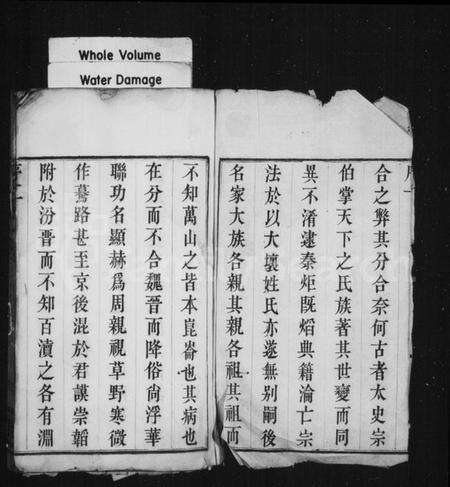 Whole Volume
Water Damage
合之弊其分合奈何古者太史宗
伯掌天下之氏族著其世變而同
異不淆逮秦炬既焰典籍淪亡宗
法於以大壞姓氏亦遂無别嗣後
名家大族各親其親各祖其祖而
不知萬山之皆本崑崙也其病也
在分而不合魏晉而降俗尚浮華
聯功名顯赫爲周親視草野寒微
作驀路甚至京後混於君謨崇韜
附於汾晉而不知百瀆之各有淵